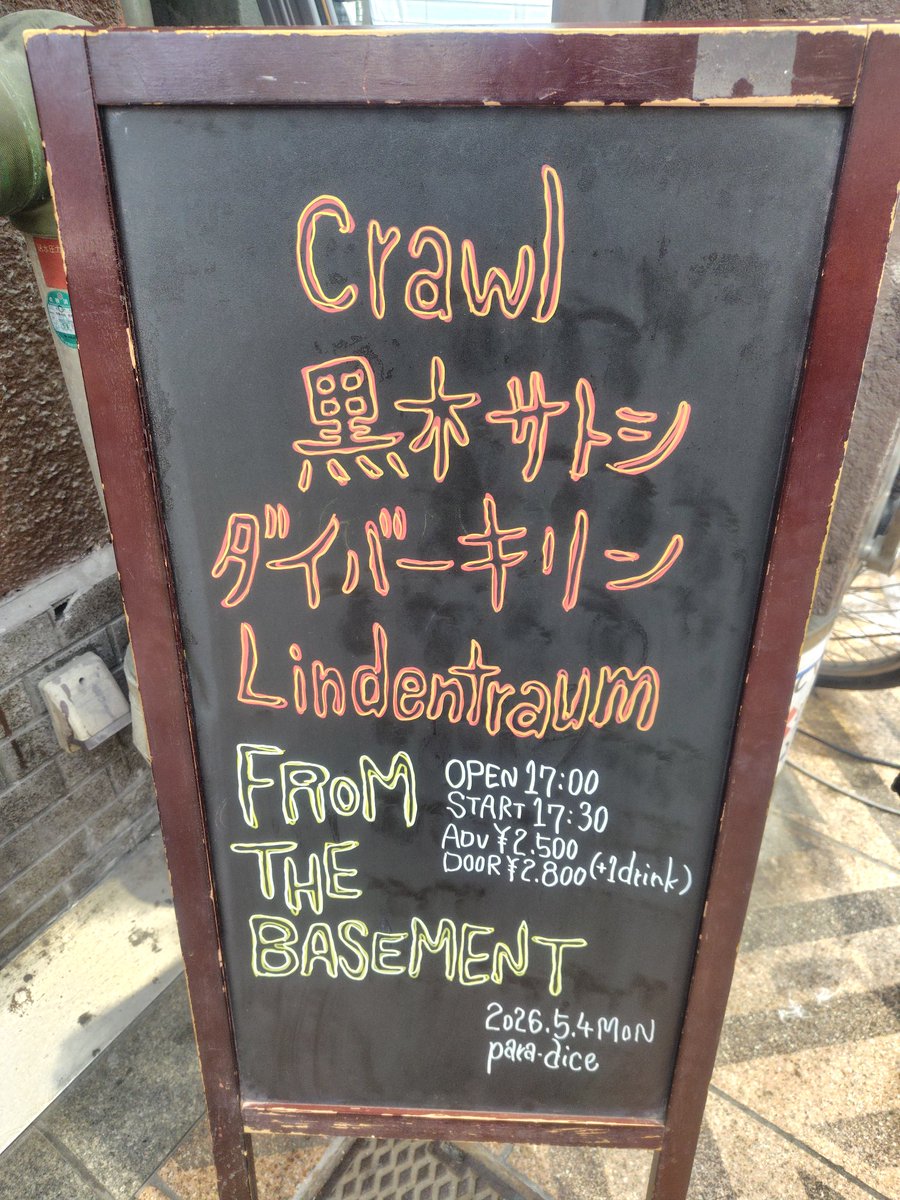 Crawl
黒木サトシ
ダイバーキリン
Lindentraum
FROM
THE
BASEMENT
OPEN 17:00
START 17:30
ADV ¥2.500
DOOR ¥2.800 (+1drink)
2026.5.4 MON
para-dice